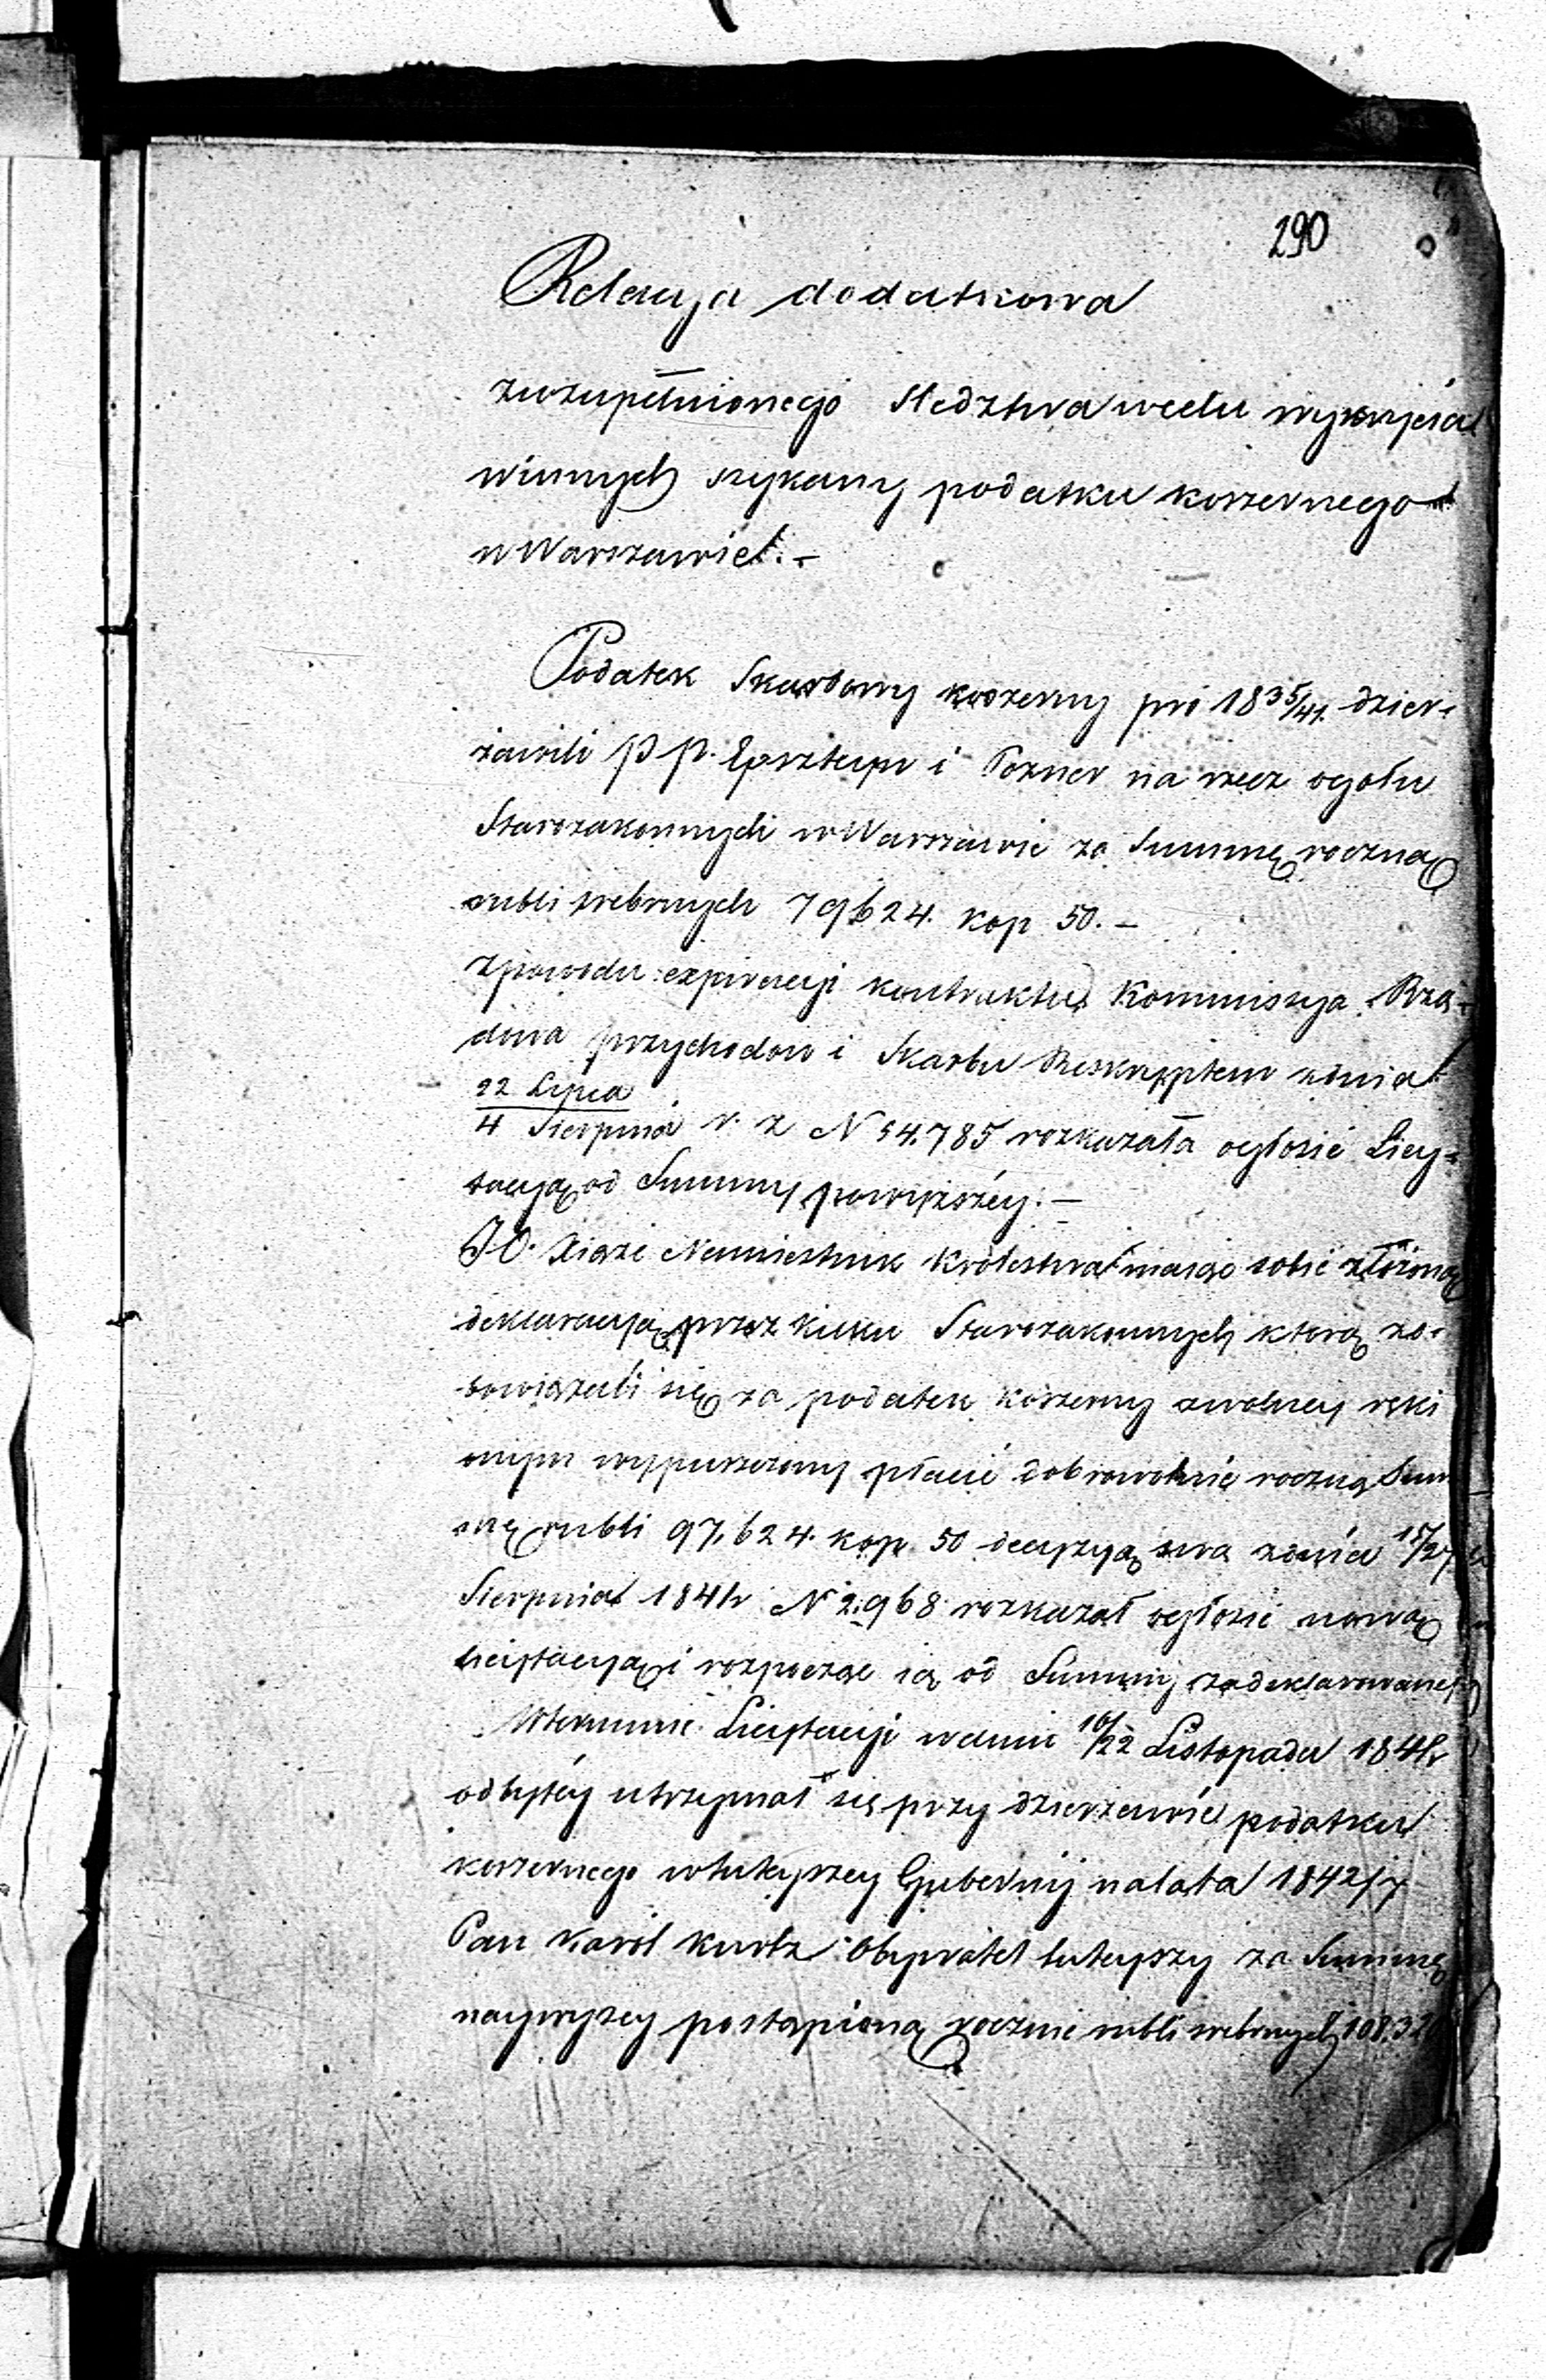 290
Relacyja dodatkowa
zuzupełnionego śledztwa wcelu wykrycia
winnych szykany podatku koszernego
w Warszawie. -
Podatek Skarbowy koszerny pro 1835/41. dzier-
żawili P P. Epszteyn i Pozner na rzecz ogołu
Starozakonnych w Warszawie za Summę roczną
rubli srebrnych 79624. kop 50. -
Zpowodu expiracyi kontraktu Kommissyja Rzą-
dowa przychodow i Skarbu Reskryptem zdnia
22 Lipca
4 Sierpnia r. z N 54.785 rozkazała ogłosić Licy-
tacyją od Summy powyższéy. -
JO. Xiąże Namiestnik Królestwa maiąc sobie złożoną
deklaracyją przez kilku Starozakonnych którą zo-
bowiązali się za podatek koszerny zwolney ręki
onym wypuszczony płacić dobrowolnie roczną Sum
mę rubli 97,624. kop. 50 decyzyą swą zdnia 15/27
Sierpnia 1841r N 2.968 rozkazał ogłosić nową
licytacyją i rozpocząć ią od Summy zadeklarowaney
Wterminie Licytacyi wdniu 10/22 Listopada 1841r
odbytéy utrzymał się przy dzierżawie podatku
koszernego wtuteyszey Gubernij nalata 1842/7
Pan Karol Kurtz Obywatel tuteyszy za Summę
naywyżey postąpioną rocznie rubli srebrnych 108,32